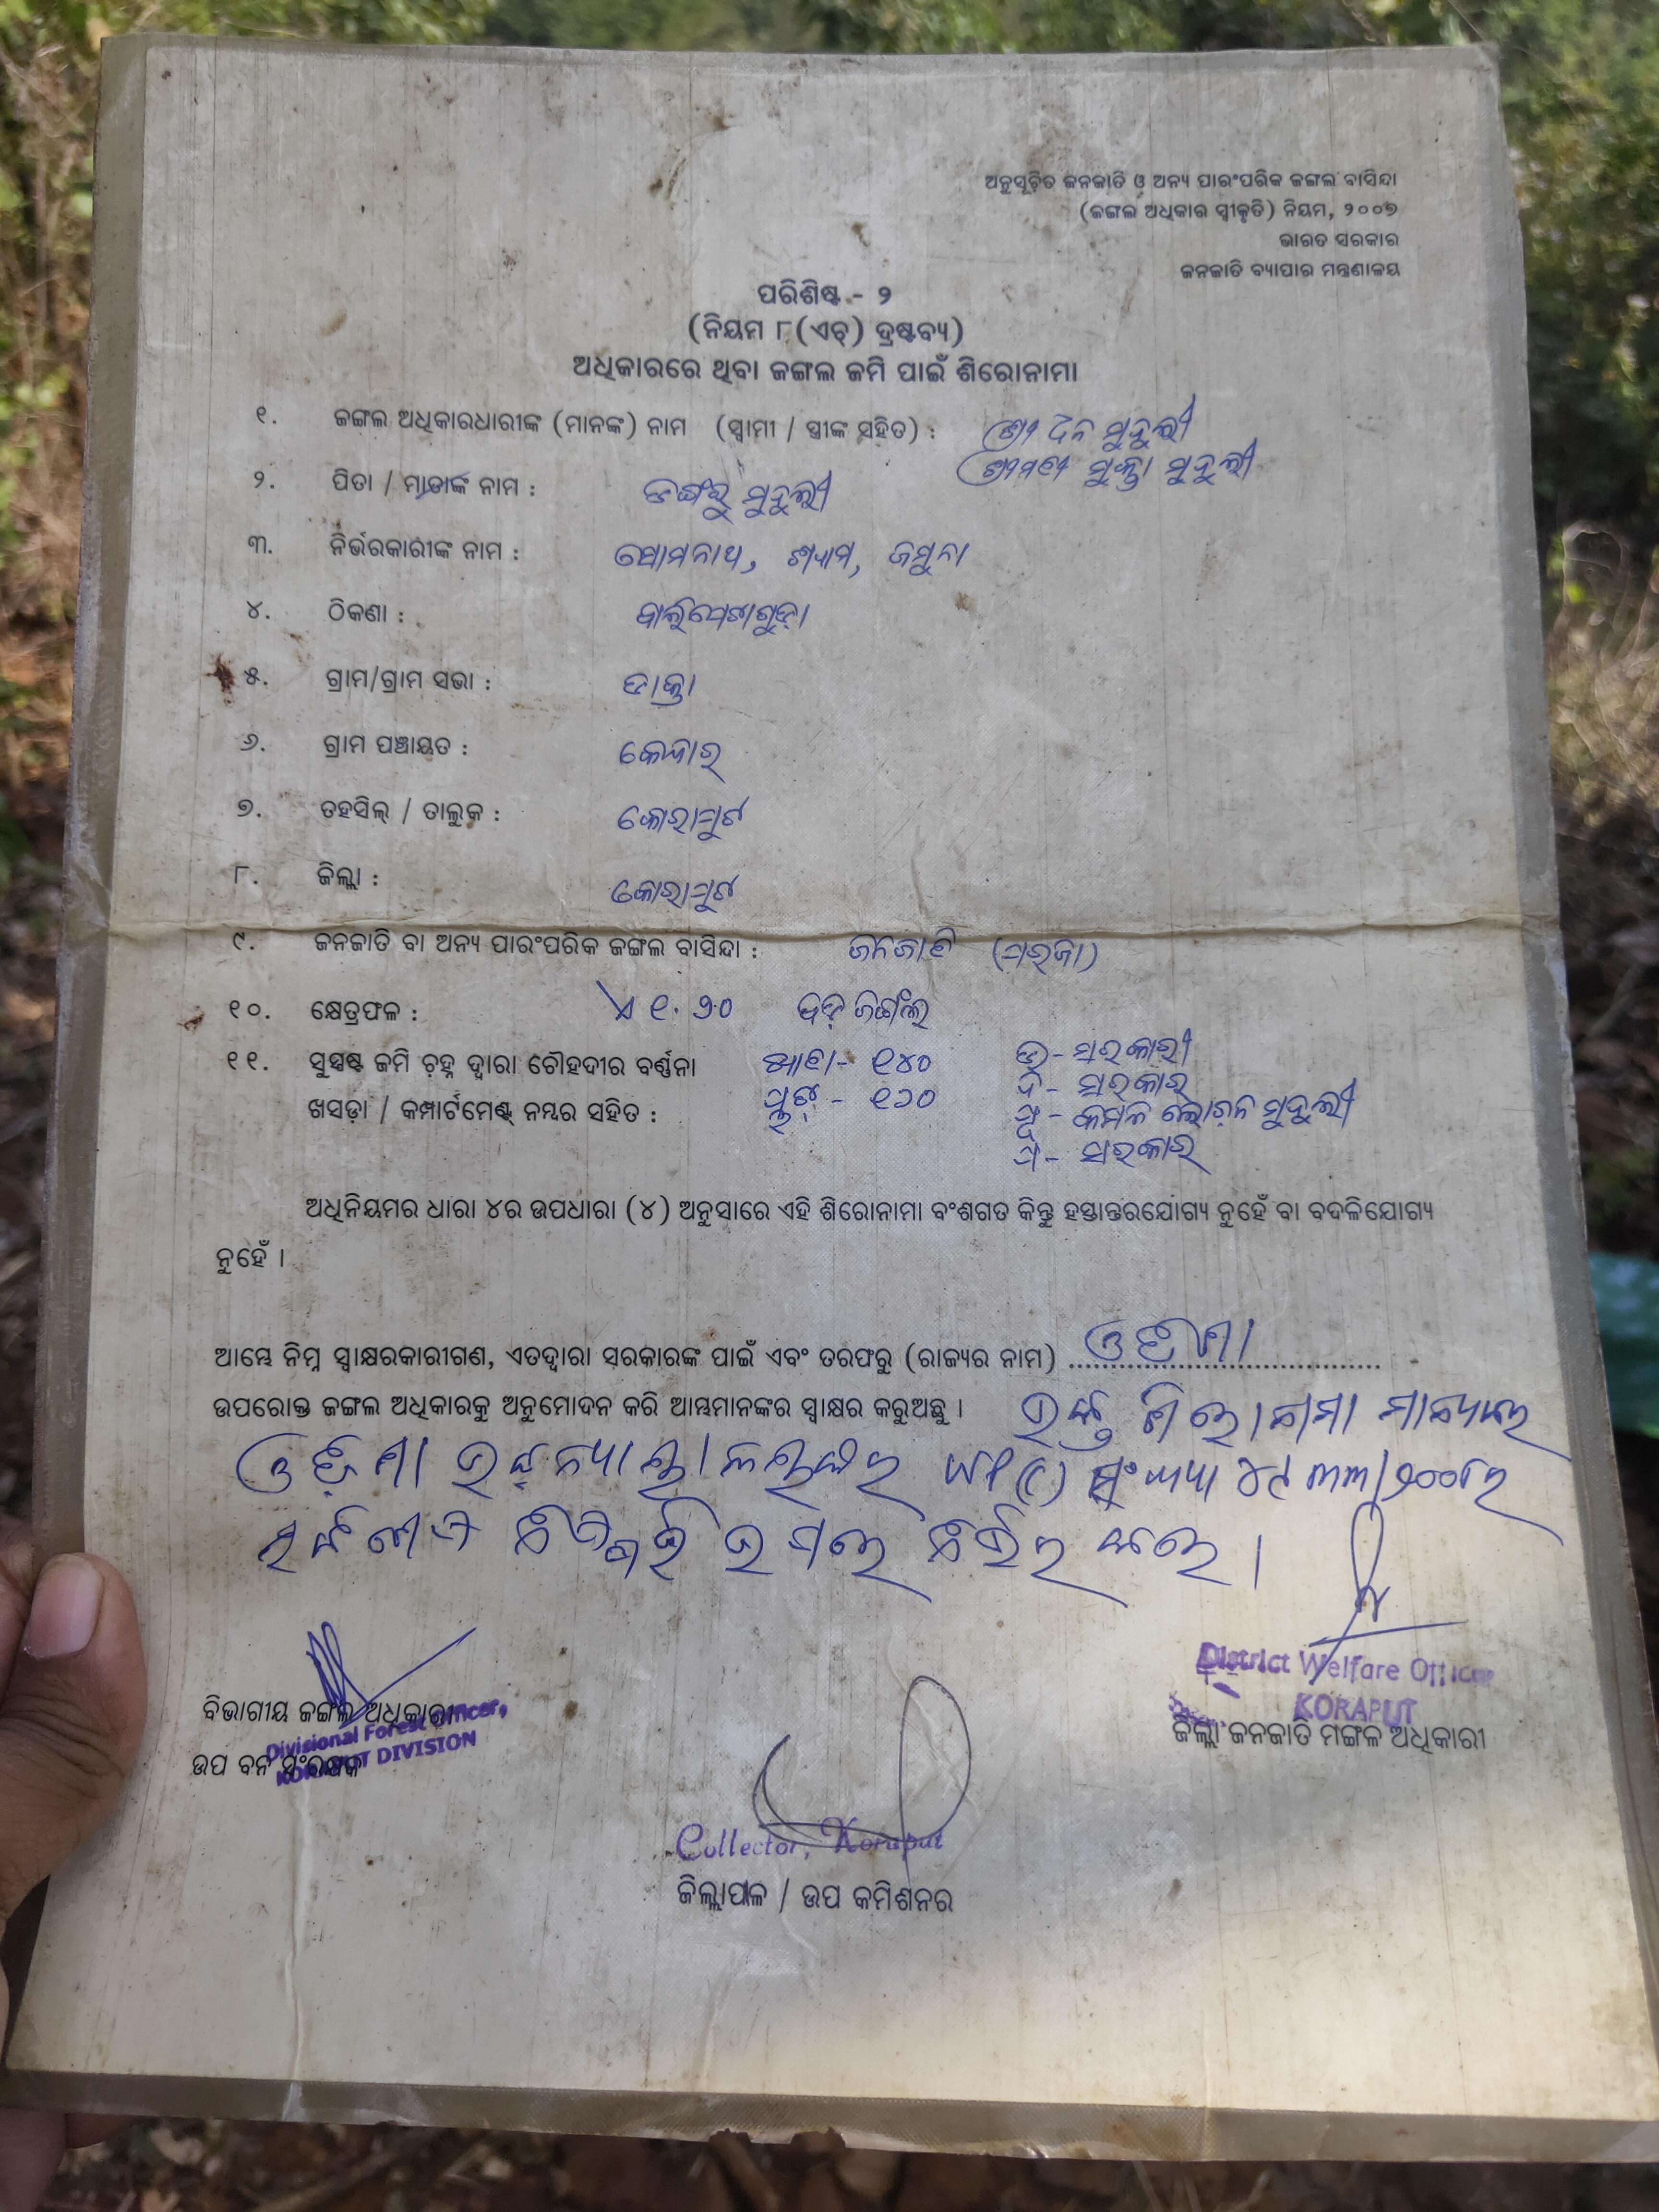 ଅନୁସୂଚିତ ଜନଜାତି ଓ ଅନ୍ୟ ପାରଂପରିକ ଜଙ୍ଗଲ ବାସିନ୍ଦା
(ଜଙ୍ଗଲ ଅଧିକାର ସ୍ୱୀକୃତି) ନିୟମ, ୨୦୦୭
ଭାରତ ସରକାର
ଜନଜାତି ବ୍ୟାପାର ମନ୍ତ୍ରଣାଳୟ
ପରିଶିଷ୍ଟ - ୨
(ନିୟମ ୮(ଏଚ୍) ଦ୍ରଷ୍ଟବ୍ୟ)
ଅଧିକାରରେ ଥିବା ଜଙ୍ଗଲ ଜମି ପାଇଁ ଶିରୋନାମା
୧. ଜଙ୍ଗଲ ଅଧିକାରଧାରୀଙ୍କ (ମାନଙ୍କ) ନାମ (ସ୍ୱାମୀ / ସ୍ତ୍ରୀଙ୍କ ସହିତ) : ଶ୍ରୀ ଦିନ ମୁଦୁଲୀ
ଶ୍ରୀମତୀ ମୁକ୍ତା ମୁଦୁଲୀ
୨. ପିତା / ମାତାଙ୍କ ନାମ : ଡଙ୍ଗରୁ ମୁଦୁଲୀ
୩. ନିର୍ଭରକାରୀଙ୍କ ନାମ : ସୋମନାଥ, ଶ୍ୟାମ, ଜମୁନା
୪. ଠିକଣା : ବାଲିପେଟାଗୁଡ଼ା
୫. ଗ୍ରାମ/ଗ୍ରାମ ସଭା :
୬. ଗ୍ରାମ ପଞ୍ଚାୟତ : କେନ୍ଦାର୍
୭. ତହସିଲ୍ / ତାଲୁକ : କୋରାପୁଟ
୮. ଜିଲ୍ଲା : କୋରାପୁଟ
୯. ଜନଜାତି ବା ଅନ୍ୟ ପାରଂପରିକ ଜଙ୍ଗଲ ବାସିନ୍ଦା : ଜନଜାତି (ପରଜା)
୧୦. କ୍ଷେତ୍ରଫଳ : ଏ ୧.୬୦ ବଡ଼ ଜଙ୍ଗଲ
୧୧. ସୁସ୍ପଷ୍ଟ ଜମି ଚିହ୍ନ ଦ୍ୱାରା ଚୌହଦୀର ବର୍ଣ୍ଣନା ଖାତା- ୧୪୦ ଉ- ସରକାରୀ
ଦ- ସରକାର୍
ଖସଡ଼ା / କମ୍ପାର୍ଟମେଣ୍ଟ୍ ନମ୍ବର ସହିତ : ପ୍ଲଟ୍ - ୧୨୦ ପୂ- କମଳ ଲୋଚନ ମୁଦୁଲୀ
ପ- ସରକାର୍
ଅଧିନିୟମର ଧାରା ୪ର ଉପଧାରା (୪) ଅନୁସାରେ ଏହି ଶିରୋନାମା ବଂଶଗତ କିନ୍ତୁ ହସ୍ତାନ୍ତରଯୋଗ୍ୟ ନୁହେଁ ବା ବଦଳିଯୋଗ୍ୟ
ନୁହେଁ ।
ଆମ୍ଭେ ନିମ୍ନ ସ୍ୱାକ୍ଷରକାରୀଗଣ, ଏତଦ୍ୱାରା ସରକାରଙ୍କ ପାଇଁ ଏବଂ ତରଫରୁ (ରାଜ୍ୟର ନାମ) ଓଡ଼ିଶା
ଉପରୋକ୍ତ ଜଙ୍ଗଲ ଅଧିକାରକୁ ଅନୁମୋଦନ କରି ଆମ୍ଭମାନଙ୍କର ସ୍ୱାକ୍ଷର କରୁଅଛୁ । ଉକ୍ତ ଶିରୋନାମା ମାନ୍ୟବର
ଓଡ଼ିଶା ଉଚ୍ଚନ୍ୟାୟାଳୟଙ୍କର WP(C) ସଂଖ୍ୟା ୪୯୩୩/୨୦୦୮ର
ଉପରେ ନିର୍ଭର କରେ ।
Divisional Forest Officer,
KORAPUT DIVISION
ବିଭାଗୀୟ ଜଙ୍ଗଲ ଅଧିକାରୀ
ଉପ ବନ ସଂରକ୍ଷକ
District Welfare Officer
KORAPUT
ଜିଲ୍ଲା ଜନଜାତି ମଙ୍ଗଳ ଅଧିକାରୀ
Collector, Koraput
ଜିଲ୍ଲାପାଳ / ଉପ କମିଶନର